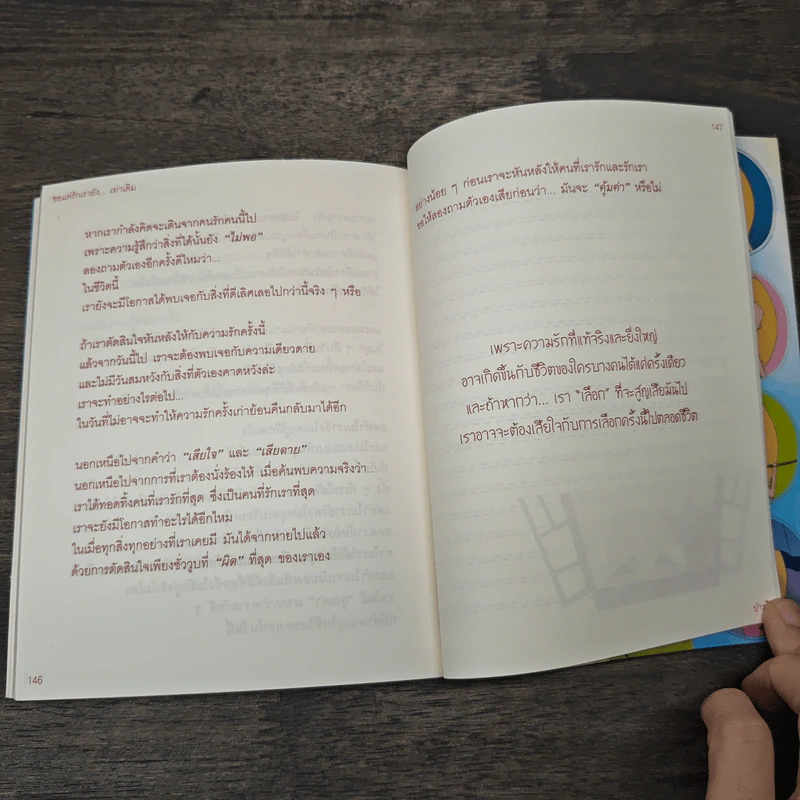 ขอแค่รักเรายัง... เท่าเดิม
หากเรากำลังคิดจะเดินจากคนรักคนนี้ไป
เพราะความรู้สึกว่าสิ่งที่ได้นั้นยัง “ไม่พอ”
ลองถามตัวเองอีกครั้งดีไหมว่า...
ในชีวิตนี้
เรายังจะมีโอกาสได้พบเจอกับสิ่งที่ดีเลิศเลอไปกว่านี้จริง ๆ หรือ
ถ้าเราตัดสินใจหันหลังให้กับความรักครั้งนี้
แล้วจากวันนี้ไป เราจะต้องพบเจอกับความเดียวดาย
และไม่มีวันสมหวังกับสิ่งที่ตัวเองคาดหวังล่ะ
เราจะทำอย่างไรต่อไป...
ในวันที่ไม่อาจจะทำให้ความรักครั้งเก่าย้อนคืนกลับมาได้อีก
นอกเหนือไปจากคำว่า “เสียใจ” และ “เสียดาย”
นอกเหนือไปจากการที่เราต้องนั่งร้องไห้ เมื่อค้นพบความจริงว่า...
เราได้ทอดทิ้งคนที่เรารักที่สุด ซึ่งเป็นคนที่รักเราที่สุด
เราจะยังมีโอกาสทำอะไรได้อีกไหม
ในเมื่อทุกสิ่งทุกอย่างที่เราเคยมี มันได้จากหายไปแล้ว
ด้วยการตัดสินใจเพียงชั่ววูบที่ “ผิด” ที่สุด ของเราเอง
146
147
อย่างน้อย ๆ ก่อนเราจะหันหลังให้คนที่เรารักและรักเรา
ขอให้ลองถามตัวเองเสียก่อนว่า... มันจะ “คุ้มค่า” หรือไม่
เพราะความรักที่แท้จริงและยิ่งใหญ่
อาจเกิดขึ้นกับชีวิตของใครบางคนได้แค่ครั้งเดียว
และถ้าหากว่า... เรา “เลือก” ที่จะสูญเสียมันไป
เราอาจจะต้องเสียใจกับการเลือกครั้งนี้ไปตลอดชีวิต